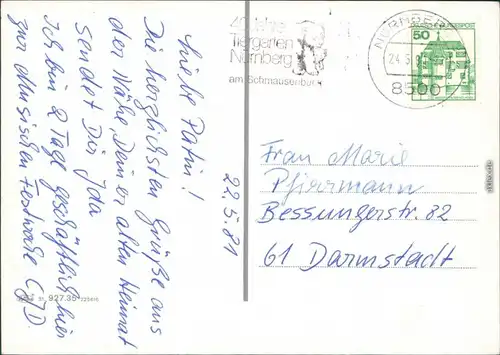 Liebe Patin!
22.5.81
Die herzlichsten Grüße aus
der Nähe Deiner alten Heimat
sendet Dir Ida
Ich bin 2 Tage geschäftlich hier
zur Musischen Festwoche CJD
927.35
Jahre
Tiergarten
Nürnberg
am Schmausenbuck
NÜRNBERG
24.5.8
8500
50
BUNDESPOST
Frau Marie
Pfirrmann
Bessungerstr. 82
61 Darmstadt